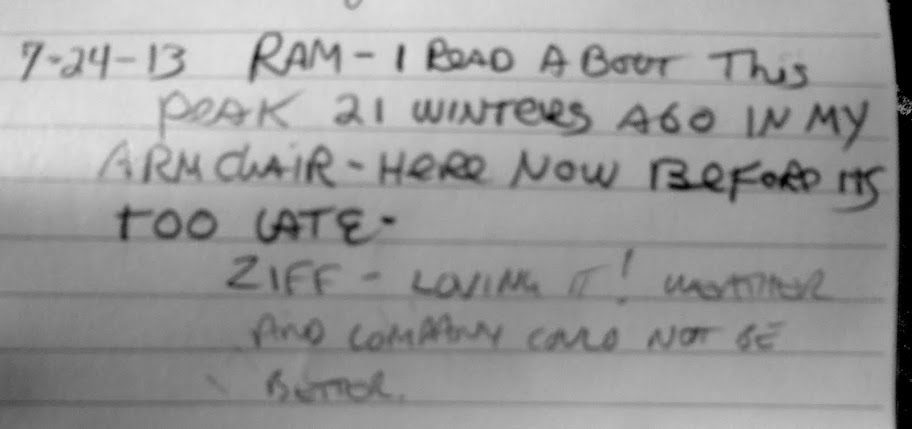 7-24-13 RAM - I READ ABOUT THIS
PEAK 21 WINTERS AGO IN MY
ARMCHAIR - HERE NOW BEFORE ITS
TOO LATE -
ZIFF - LOVING IT! WEATHER
AND COMPANY COULD NOT BE
BETTER.